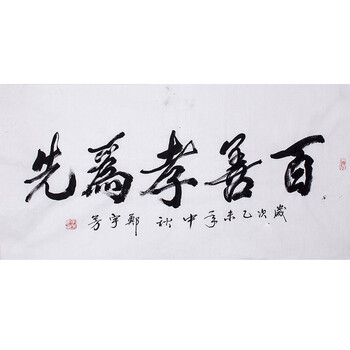 百善孝為先
歲次乙未年中秋 鄭宇芳